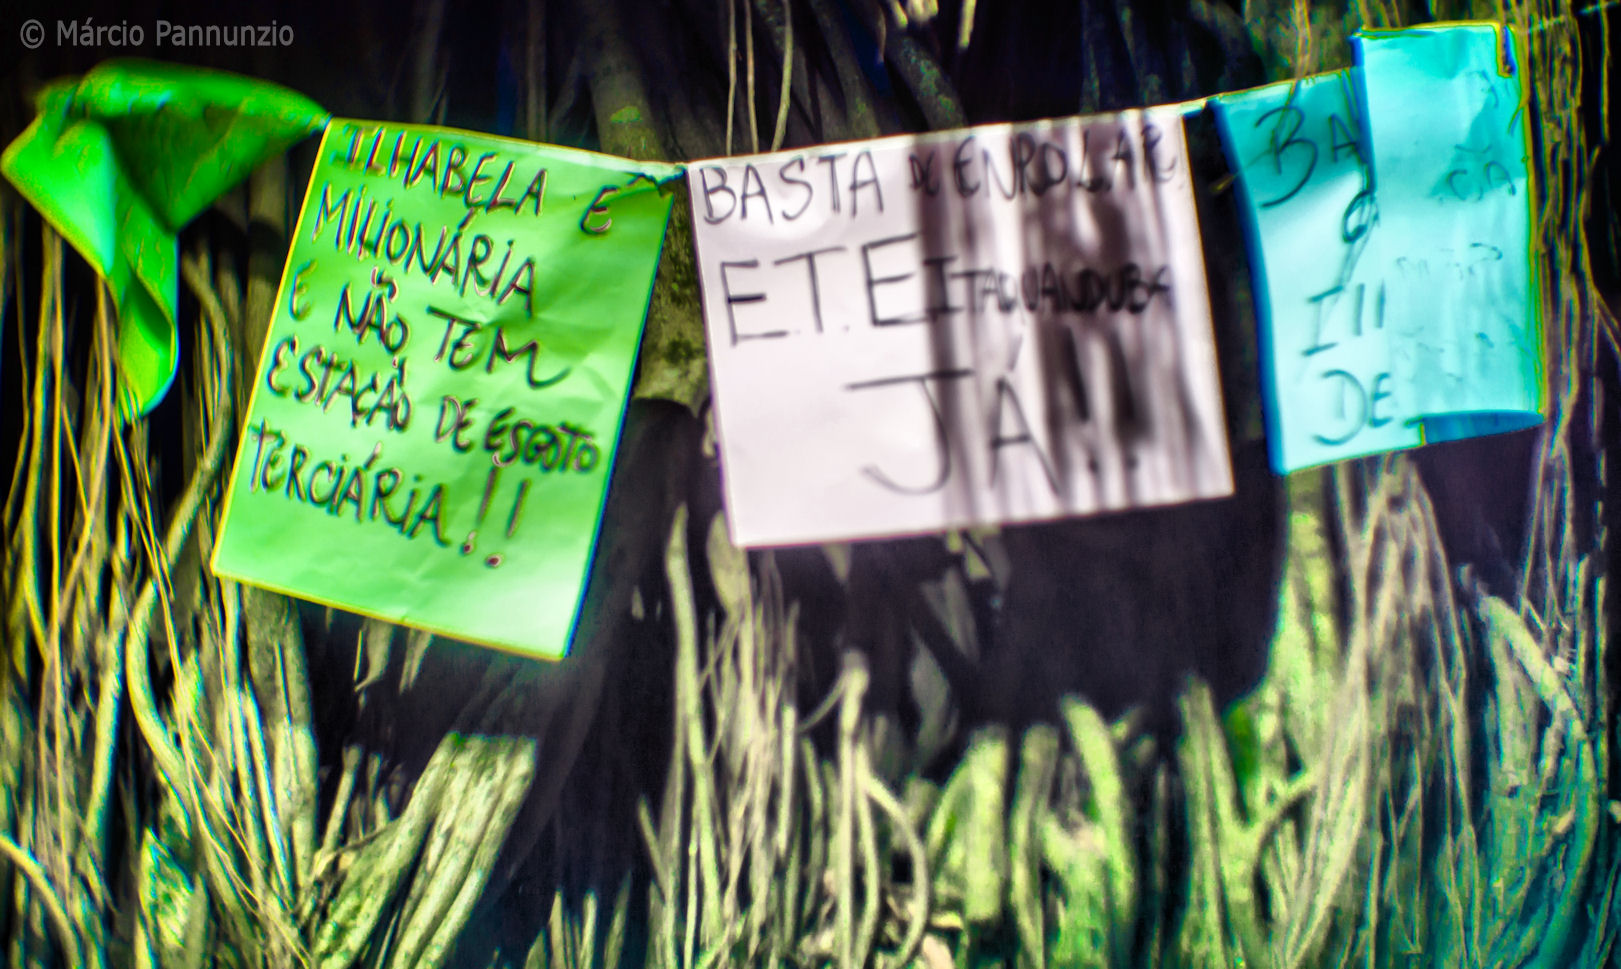 © Márcio Pannunzio
ILHABELA É
MILIONÁRIA
E NÃO TEM
ESTAÇÃO DE ESGOTO
TERCIÁRIA!!
BASTA DE ENROLAR.
E.T.E ITAQUANDUBA
JÁ!!
BA
DE